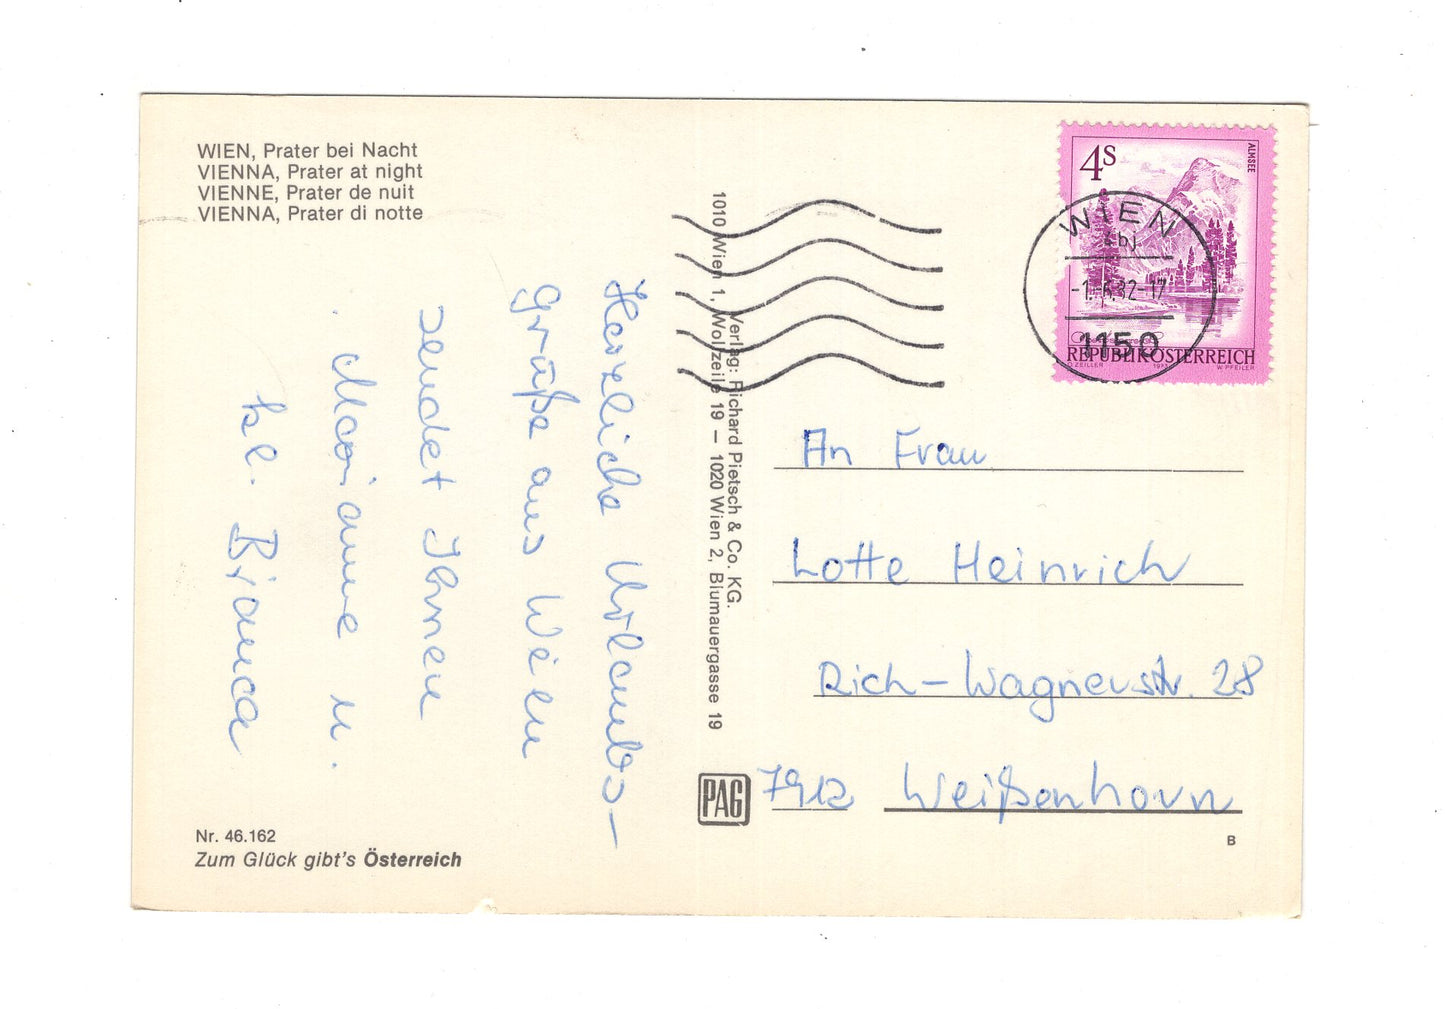 WIEN, Prater bei Nacht
VIENNA, Prater at night
VIENNE, Prater de nuit
VIENNA, Prater di notte
Herzliche Urlaubs-
grüße aus Wien
sendet Ihnen
Marianne u.
kl. Bianca
Nr. 46.162
Zum Glück gibt's Österreich
Verlag: Richard Pietsch & Co. KG.
1010 Wien 1, Wollzeile 19 – 1020 Wien 2, Blumauergasse 19
PAG
4S
ALMSEE
REPUBLIK ÖSTERREICH
O. ZEILER
W. PFEILER
WIEN
1150
An Frau
Lotte Heinrich
Rich-Wagnerstr. 28
7912 Weißenhorn
B